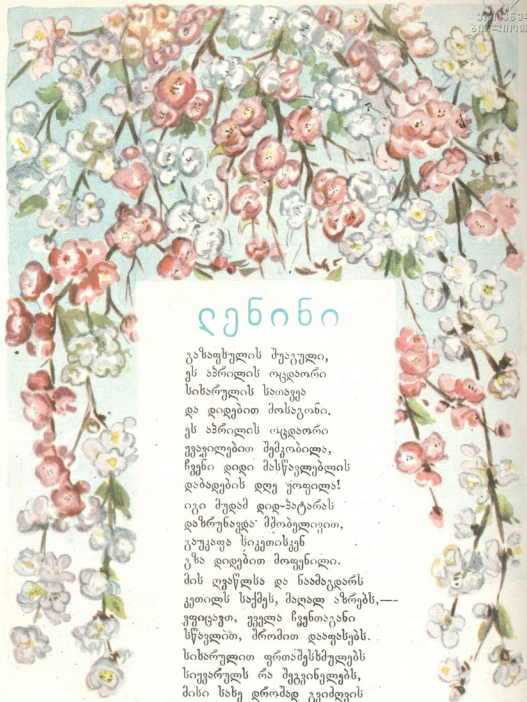 ეროვნული
ბიბლიოთეკა
ლენინი
გაზაფხულის შუაგული,
ეს აპრილის ოცდაორი
სიხარულის სათავეა
და დიდებით მოსაგონი.
ეს აპრილის ოცდაორი
ყვავილებით შემკობილა,
ჩვენი დიდი მასწავლებლის
დაბადების დღე ყოფილა!
იგი მუდამ დიდ-პატარას
დაზრუნავდა მშობელივით,
გაუკაფა სიკეთისკენ
გზა დიდებით მოფენილი.
მის ღვაწლსა და ნაამაგდარს
კეთილს საქმეს, მაღალ აზრებს,—
ვფიცავთ, ყველა ჩვენთაგანი
სწავლით, შრომით დააფასებს.
სიხარულით ფრთაშესხმულებს
სიყვარულს რა შეგვინელებს,
მისი სახე დროშად გვიძღვის